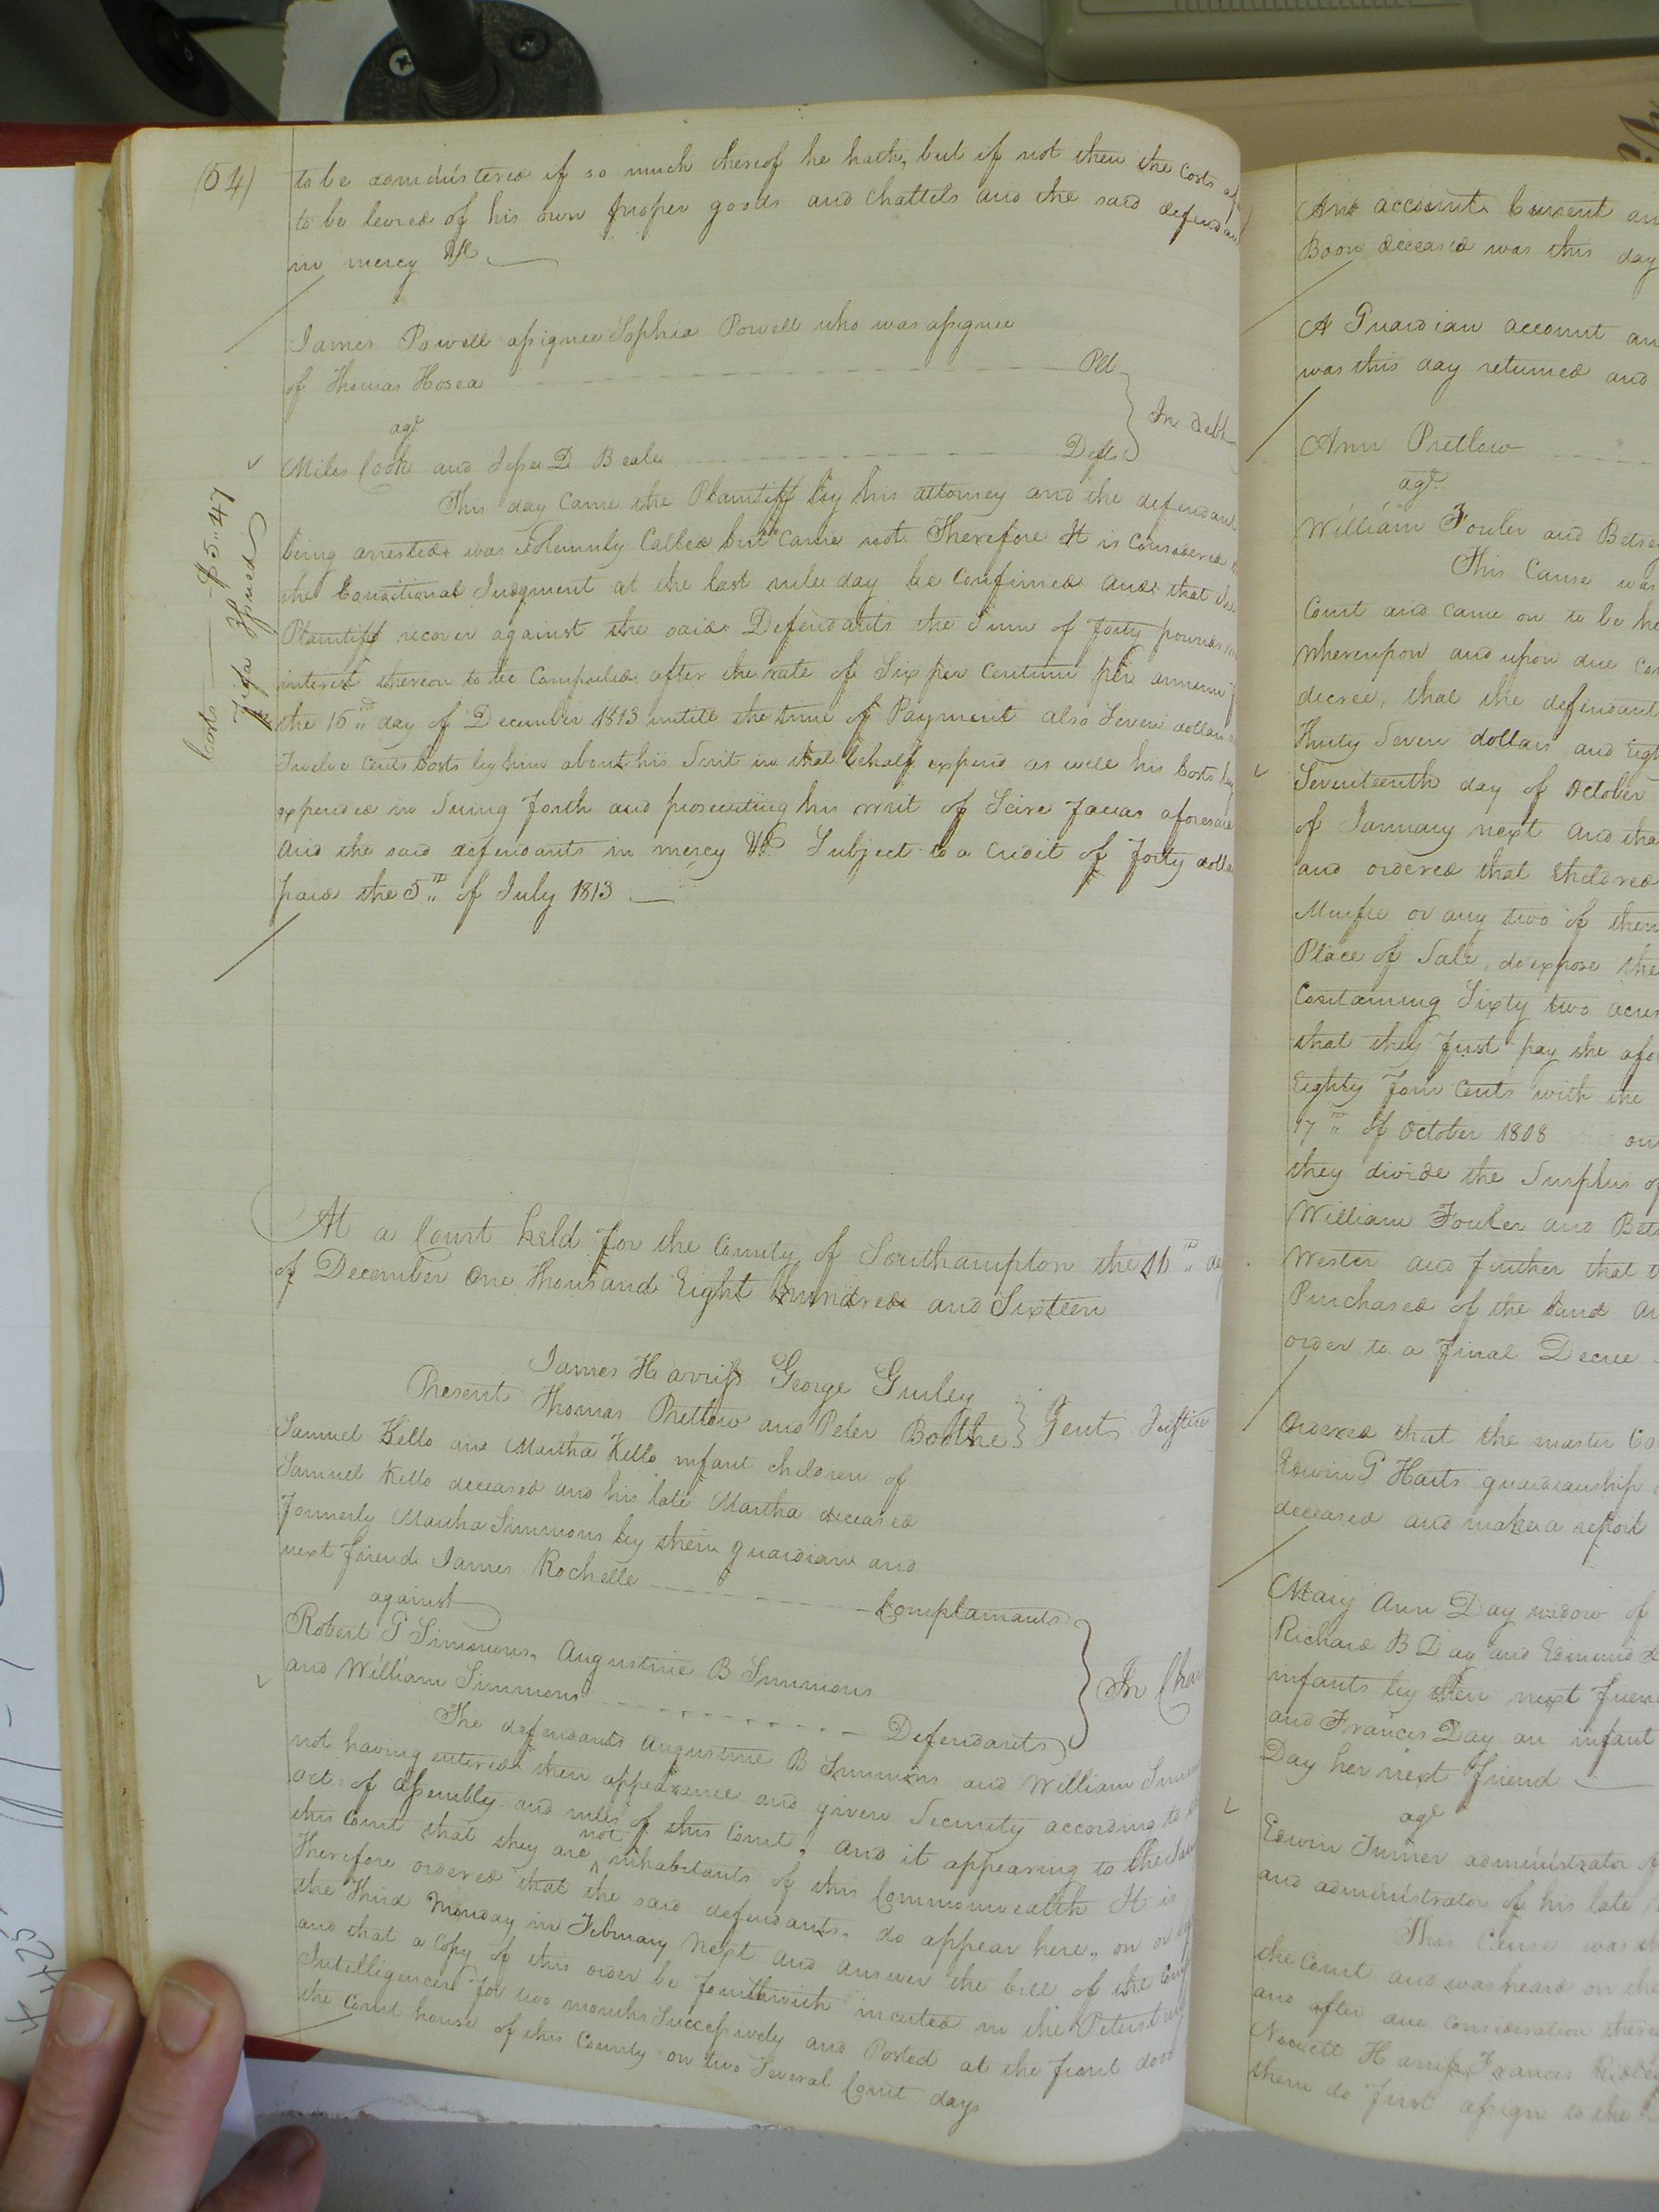 (54)
to be administered if so much thereof he hath, but if not then the costs af
to be levied of his own proper goods and chattels and the said defendan
in mercy &c
James Powell assignee Sophia Powell who was assignee
of Thomas Hosea Plt
agt
In debt
Miles Cook and Jesse D Beale Defts
Costs $5..47
fi fa Issued
This day came the Plaintiff by his attorney and the defendant
being arrested was Solemnly Called but came not Therefore It is Considered
the Conditional Judgment at the last rules day be confirmed and that the
Plaintiff recover against the said Defendants the Sum of forty pounds
interest thereon to be Computed after the rate of Six per Centum per annum f
the 15th day of December 1813 untill the time of Payment also Seven dollars
Twelve Cents Costs by him about his Suit in that behalf expend as well his Costs by
expended in Suing forth and prosecuting his writ of Scire facias aforesaid
And the said defendants in mercy &c Subject to a Credit of forty dolla
paid the 5th of July 1813
At a Court held for the County of Southampton the 16th da
of December One thousand Eight hundred and Sixteen
James Harriss George Gurley
Present Thomas Pretlow and Peter Boothe Gent Justices
Samuel Kello and Martha Kello infant children of
Samuel Kello deceased and his late Martha deceased
formerly Martha Simmons by their guardian and
next friend James Rochelle Complainants
against
In Chan
Robert G Simmons, Augustine B Simmons
and William Simmons Defendants
The defendants Augustine B Simmons and William Simm
not having entered their appearance and given Security according to th
act of assembly and rules of this Court, and it appearing to the
this Court that they are not inhabitants of this Commonwealth It is
Therefore ordered that the said defendants, do appear here, on
the Third Monday in February next and answer the bill of the Comp
and that a Copy of this order be fourthwith incerted in the Petersburg
Intelligencer for two months Successively and Posted at the front door
the Court house of this County on two Several Court days
And account Current an
Boon deceased was this day
A Guardian account an
was this day returned and
Ann Pretlow
agt
William Fowler and Betse
This Cause was
Court and came on to be he
whereupon and upon due con
decree, that the defendant
Thirty Seven dollars and Eigh
Seventeenth day of October
of January next And tha
and ordered that Etheldred
Murfee or any two of them
Place of Sale, do expose the
Containing Sixty two acres
that they first pay the afo
Eighty four Cents with the
17th of October 1808 ou
they divide the Surplus of
William Fowler and Bets
Wester and further that t
Purchased of the land an
order to a final Decree
Ordered that the master Co
Edwin G Harts guardianship
deceased and make a report
Mary Ann Day widow of
Richard B Day and Edmund D
infants by their next frien
and Frances Day an infant
Day her next friend
agt
Edwin Turner administrator of
and administrator of his late
This Cause was th
the Court and was heard on the
and after due consideration there
Newitt Harriss, Frances Ridley
them do first assign to the